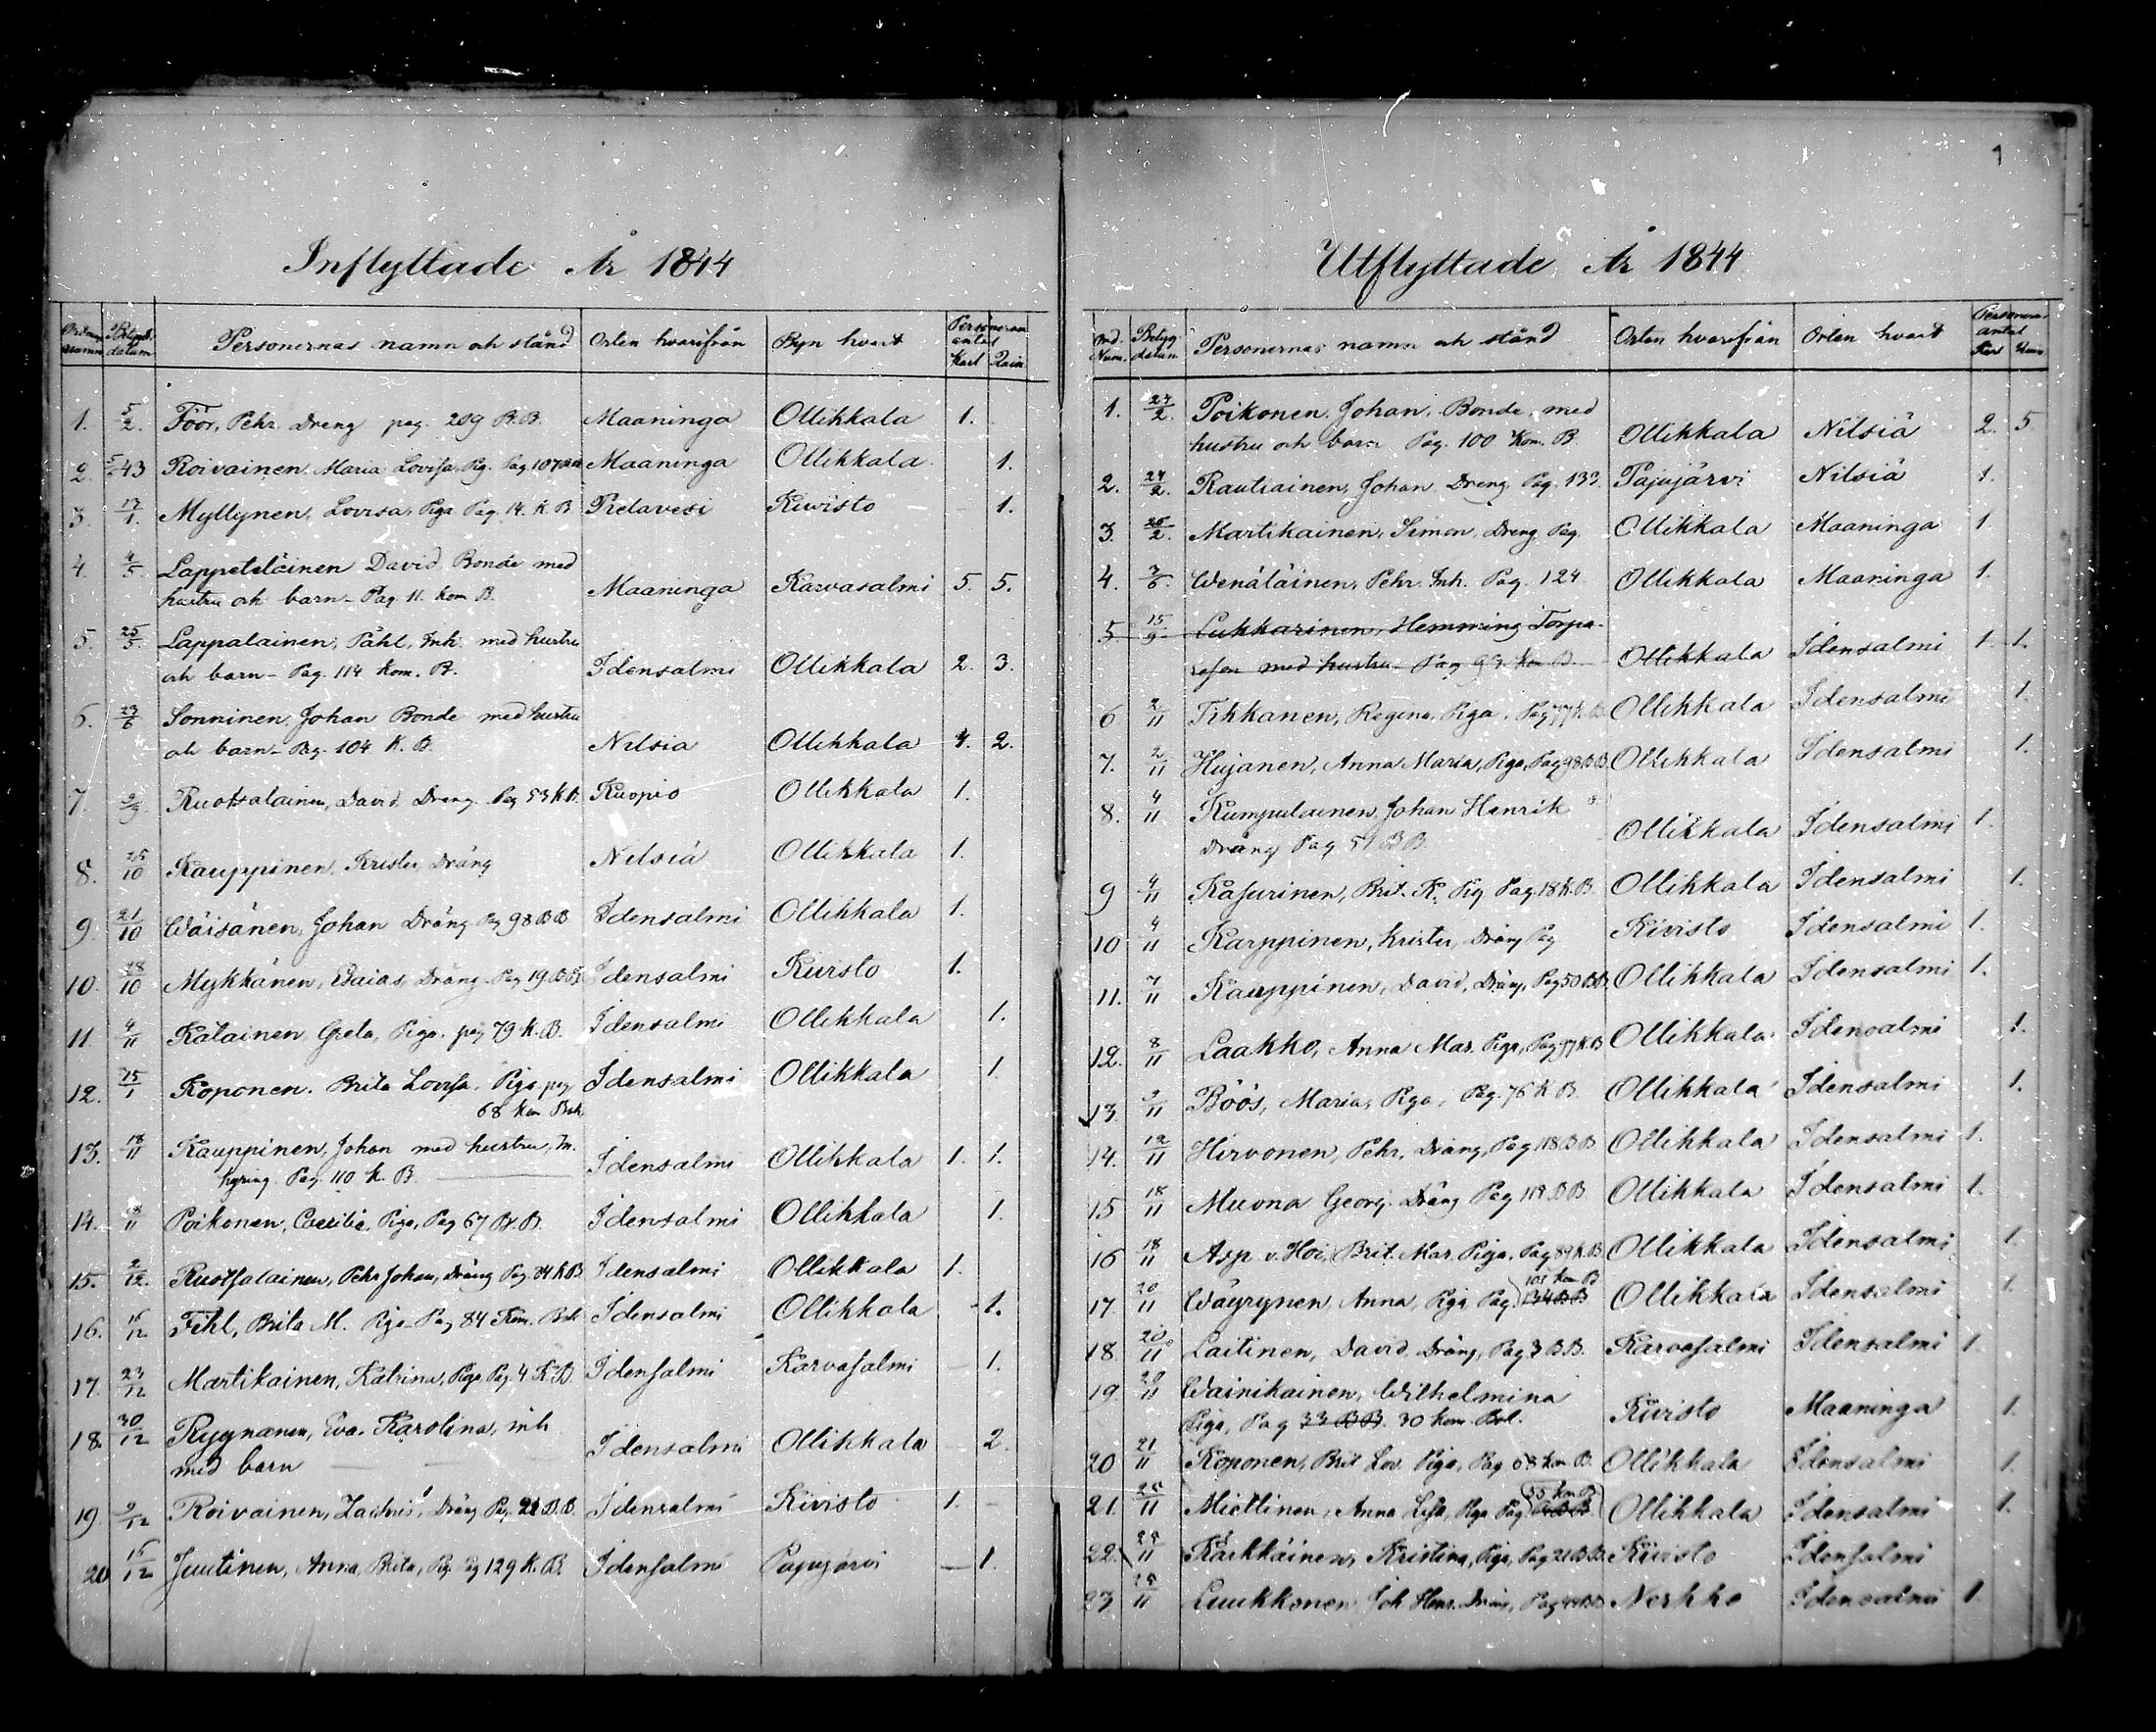 1
Inflyttade År 1844
Personernas namn och stånd Orten hvarifrån Byn hvart Personers antal
datum Karl Qvin
1. 5/2. Föör, Pehr Dreng pag. 209 B.B. Maaninga Ollikkala 1.
2. 43 Roivainen Maria Lovisa, Pig. Pag 107 Maaninga Ollikkala 1.
3. 17/1. Myllynen, Lovisa, Piga Pag. 14. K. B Pielavesi Kivisto 1.
4. 4/5. Lappeteläinen David Bonde med
hustru och barn - Pag 11. kom B. Maaninga Karvasalmi 5. 5.
5. 25/5. Lappalainen, Påhl, Inh. med hustru
och barn - Pag. 114 Kom. B. Idensalmi Ollikkala 2. 3.
6. 23/6 Sonninen, Johan Bonde med hustru
och barn - Pag. 104 K. B. Nilsia Ollikkala 4. 2.
7. Ruotsalainen, David Dreng Pag 53 K B. Kuopio Ollikkala 1.
8. 25/10 Kauppinen, Krister, Dräng Nilsiä Ollikkala 1.
9. 21/10 Wäisänen, Johan Dräng. Pag 98 B B Idensalmi Ollikkala 1.
10. 28/10 Mykkänen, Esaias, Dräng. Pag 19. B B. Idensalmi Kivisto 1.
11. 4/11 Katainen Greta, Piga. pag 79 K. B. Idensalmi Ollikkala 1.
12. 15/1 Koponen. Brita Lovisa. Piga pag Idensalmi Ollikkala 1.
68 kom Bok
13. 18/11 Kauppinen, Johan med hustru, In
hysing. Pag. 110 K. B. Idensalmi Ollikkala 1. 1.
14. 18/11 Poikonen, Cecilia, Piga, Pag 67 B. B. Idensalmi Ollikkala 1.
15. 2/12. Ruotsalainen, Pehr Johan, Dräng Pag. 34 K B Idensalmi Ollikkala 1.
16. 16/12 Fihl, Brita M. Piga Pag 84 Kom. Bok Idensalmi Ollikkala 1.
17. 23/12 Martikainen, Katrina, Piga, Pag. 4 K. B. Idensalmi Karvasalmi 1.
18. 30/12 Ryynänen, Eva Karolina, inh
med barn Idensalmi Ollikkala 2.
19. 9/12 Roivainen, Zachris, Dräng Pag. 21 B. B. Idensalmi Kivisto 1.
20 15/12 Juutinen, Anna, Brita, Pig. Pag 129 K. B. Idensalmi Pajujärvi 1.
Utflyttade År 1844
Ord. Num. Betyg. datum Personernas namn och stånd Orten hvarifrån Orten hvart Personers antal
1. 24/2. Poikonen, Johan, Bonde, med
hustru och barn Pag. 100 Kom. B. Ollikkala Nilsiä 2. 5
2. 24/2. Rautiainen, Johan Dreng Pag. 133. Pajujärvi Nilsiä 1.
3. 25/2. Martikainen, Simon, Dreng Pag. Ollikkala Maaninga 1.
4. Wenäläinen, Pehr Inh. Pag. 124 Ollikkala Maaninga 1.
5 15/9 Lukkarinen, Hemming Torpa-
med hustru Pag 93. Kom B. Ollikkala Idensalmi 1. 1.
6 2/11 Tikkanen, Regina, Piga. Pag 77 K. B. Ollikkala Idensalmi 1.
7. 2/11 Hujanen, Anna Maria, Piga, Pag 98 B B Ollikkala Idensalmi 1.
8. 4/11 Kumpulainen, Johan Henrik
Dräng Pag 51 B B. Ollikkala Idensalmi 1.
9 4/11 Kasurinen, Brit. K. Pig Pag 18 K. B. Ollikkala Idensalmi 1.
10 4/11 Karppinen, Krister, Dräng Pag Kivisto Idensalmi 1.
11. 7/11 Kauppinen, David, Dräng, Pag 50 B.B. Ollikkala Idensalmi 1.
12. 8/11 Laakko, Anna Mar. Piga, Pag 77 K B Ollikkala Idensalmi 1.
13. 9/11 Böös, Maria, Piga, Pag. 76 K B. Ollikkala Idensalmi 1.
14. 12/11 Hirvonen, Pehr, Dräng, Pag 118 B B. Ollikkala Idensalmi 1.
15 18/11 Muona Georg. Dräng Pag 119 B B Ollikkala Idensalmi 1.
16 18/11 Asp v. Hoi, Brit. Mar. Piga. Pag 89 K. B Ollikkala Idensalmi 1.
17. 20/11 Wäyrynen, Anna, Piga Pag. 134 B B 101 kom B Ollikkala Idensalmi 1.
18. 20/11 Laitinen, David, Dräng, Pag 3 B B. Karvasalmi Idensalmi 1.
19. 20/11 Wainikainen, Wilhelmina
Piga, Pag 33 B B. 30 kom. Bok. Kivisto Maaninga 1.
20 21/11 Koponen, Brit Lov. Piga, Pag 68 kom B. Ollikkala Idensalmi 1.
21. 25/11 Miettinen, Anna Lisa, Piga Pag 55 kom B Ollikkala Idensalmi 1.
22. 25/11 Kärkkäinen, Kristina, Piga, Pag 21 B B. Kivisto Idensalmi
23 25/11 Luukkonen Joh Henr. Dräng, Pag Nerkko Idensalmi 1.